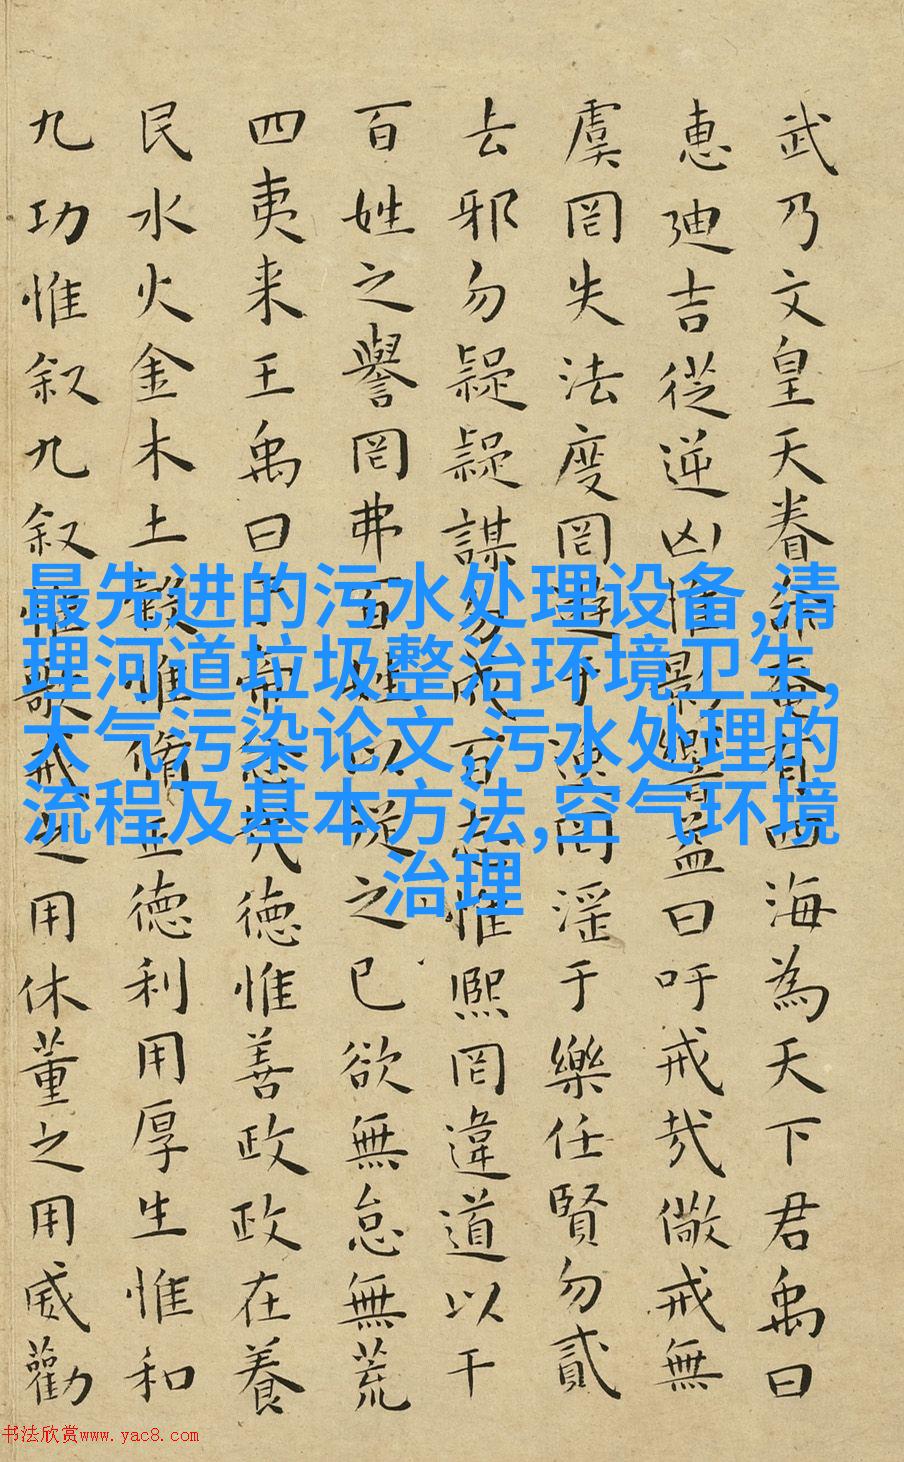 武乃文皇天眷命奄有四海為天下君禹曰
惠廸吉從逆凶惟影響益曰吁戒哉儆戒無
虞罔失法度罔遊于逸罔淫于樂任賢勿貳
去邪勿疑疑謀勿成百志惟熙罔違道以干
百姓之譽罔弗百姓以從之已欲無怠無荒
四夷来王禹曰於帝念哉德惟善政政在養
民水火金木土穀惟脩正德利用厚生惟和
九功惟叙九叙惟歌戒之用休董之用威勸
最先进的污水处理设备,清
理河道垃圾整治环境卫生,
大气污染论文,污水处理的
流程及基本方法,空气环境
治理
书法欣赏www.yac8.com